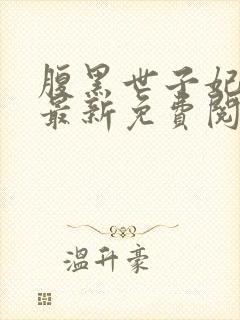 腹黑世子妃
最新免費閱
溫升豪